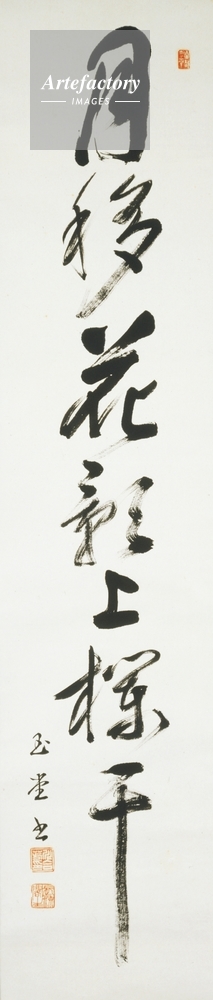 Artefactory
IMAGES
月移花影上欄干
玉堂書